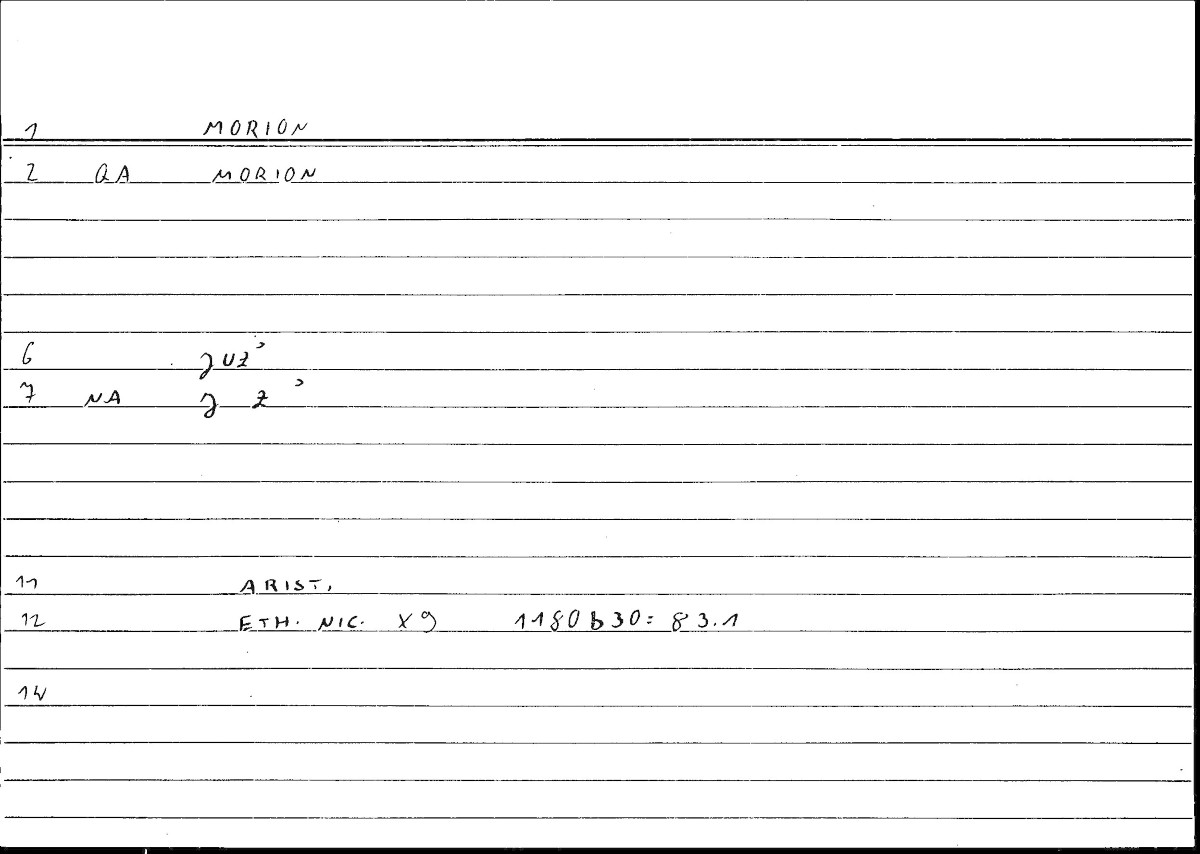 1 MORION
2 QA MORION
6 ǧuzʾ
7 NA ǧ z ʾ
11 ARIST.
12 ETH. NIC. X9 1180b30: 83.1
14